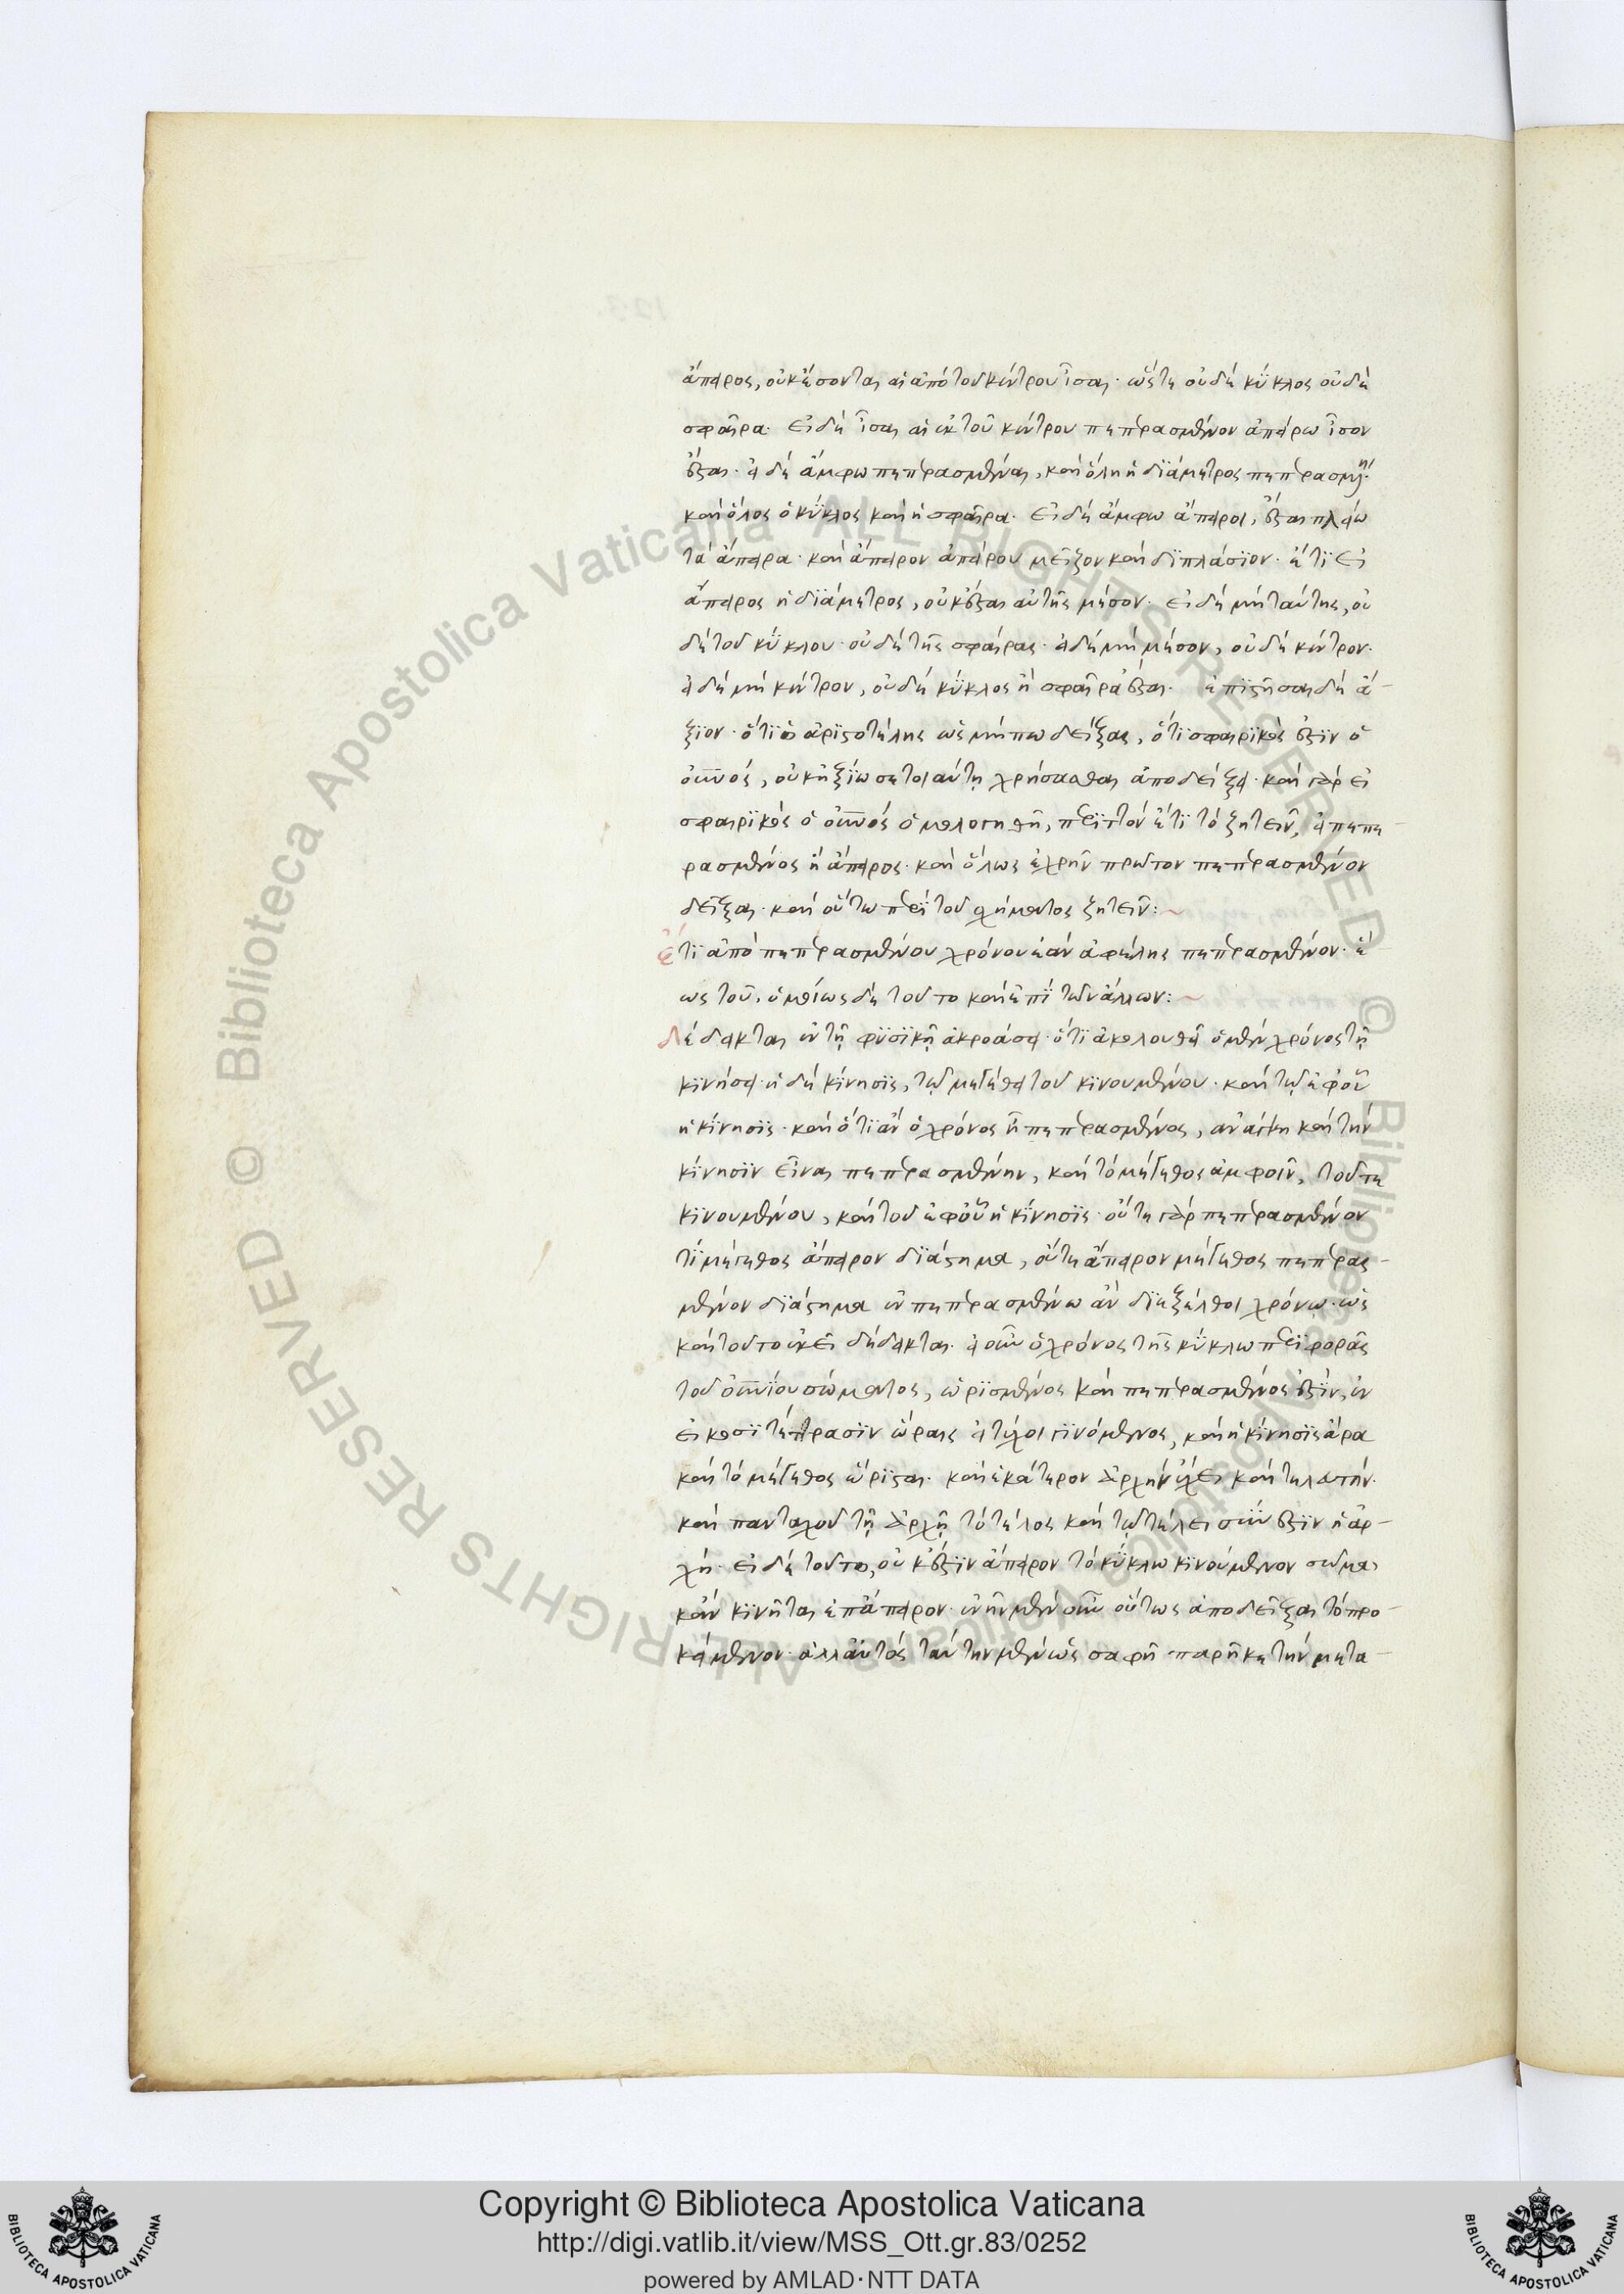 ἄπειρος, οὐκ ἔσονται αἱ ἀπὸ τοῦ κέντρου ἴσαι· ὥστε οὐδὲ κύκλος οὐδὲ
σφαῖρα· εἰ δὲ ἴσαι αἱ ἐκ τοῦ κέντρου πεπερασμένον ἀπείρω ἴσον
ἔσται· εἰ δὲ ἄμφω πεπερασμέναι, καὶ ὅλη ἡ διάμετρος πεπερασμένη·
καὶ ὅλος ὁ κύκλος καὶ ἡ σφαῖρα· εἰ δὲ ἄμφω ἄπειροι, ἔσται πλείω
τὰ ἄπειρα· καὶ ἄπειρον ἀπείρου μεῖζον καὶ διπλάσιον· ἔτι εἰ
ἄπειρος ἡ διάμετρος, οὐκ ἔσται αὐτῆς μέσον· εἰ δὲ μὴ ταύτης, οὐ
δὲ τοῦ κύκλου· οὐδὲ τῆς σφαίρας· εἰ δὲ μὴ μέσον, οὐδὲ κέντρον·
εἰ δὲ μὴ κέντρον, οὐδὲ κύκλος ἢ σφαῖρα ἔσται· ἐπιστῆσαι δὲ ἄ-
ξιον· ὅτι ὁ ἀριστοτέλης ὡς μήπω δείξας, ὅτι σφαιρικός ἐστιν ὁ
οὐνός, οὐκ ἠξίωσε τοιαύτη χρήσασθαι ἀποδείξει· καὶ γὰρ εἰ
σφαιρικὸς ὁ οὐνός ὁμολογηθῆ, περιττὸν ἔτι τὸ ζητεῖν, εἰ πεπε-
ρασμένος ἢ ἄπειρος· καὶ ὅλως ἐχρῆν πρῶτον πεπερασμένον
δεῖξαι· καὶ οὕτω περὶ τοῦ σχήματος ζητεῖν:~
ἔτι ἀπὸ πεπερασμένου χρόνου ἐὰν ἀφέλης πεπερασμένον· ἕ
ως τοῦ, ὁμοίως δὲ τοῦτο καὶ ἐπὶ τῶν ἄλλων:~
Δέδεικται ἐν τῇ φυσικῇ ἀκροάσει· ὅτι ἀκολουθεῖ ὁ μὲν χρόνος τῇ
κινήσει· ἡ δὲ κίνησις, τῷ μεγέθει τοῦ κινουμένου· καὶ τῷ ἐφ' οὗ
ἡ κίνησις· καὶ ὅτι ἂν ὁ χρόνος ἦ πεπερασμένος, ἀνάγκη καὶ τὴν
κίνησιν εἶναι πεπερασμένην, καὶ τὸ μέγεθος ἀμφοῖν, τοῦ τε
κινουμένου, καὶ τοῦ ἐφ' οὗ ἡ κίνησις· οὔτε γὰρ πεπερασμένον
τι μέγεθος ἄπειρον διάστημα, οὔτε ἄπειρον μέγεθος πεπερασ-
μένον διάστημα ἐν πεπερασμένω ἂν διεξέλθοι χρόνῳ· ὡς
καὶ τοῦτο ἐκεῖ δέδεικται· εἰ οὖν ὁ χρόνος τῆς κύκλω περιφορᾶς
τοῦ οὐνίου σώματος, ὡρισμένος καὶ πεπερασμένος ἐστὶν, ἐν
εἰκοσιτέτρασιν ὥραις εἰ τύχοι γινόμενος, καὶ ἡ κίνησις ἄρα
καὶ τὸ μέγεθος ὥρισται· καὶ ἑκάτερον ἀρχὴν ἔχει καὶ τελευτήν·
καὶ πανταχοῦ τῇ ἀρχῇ τὸ τέλος καὶ τῷ τέλει σύν ἐστιν ἡ ἀρ-
χή· εἰ δὲ τοῦτο, οὐκ ἔστιν ἄπειρον τὸ κύκλω κινούμενον σῶμα,
κἂν κινῆται ἐπ' ἄπειρον· ἐνῆν μὲν οὖν οὕτως ἀποδεῖξαι τὸ προ-
κείμενον· ἀλλ' αὐτὸς ταύτην μὲν ὡς σαφῆ παρῆκε τὴν μετα-
Copyright © Biblioteca Apostolica Vaticana
http://digi.vatlib.it/view/MSS_Ott.gr.83/0252
powered by AMLAD·NTT DATA